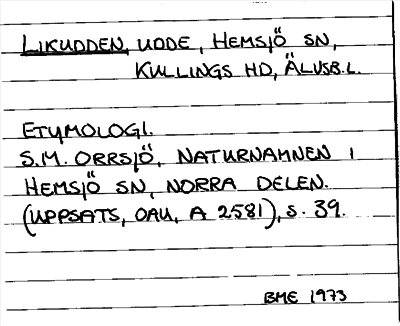 LIKUDDEN, UDDE, HEMSJÖ SN,
KULLINGS HD, ÄLVSB.L.
ETYMOLOGI.
S.M. ORRSJÖ, NATURNAMNEN I
HEMSJÖ SN, NORRA DELEN.
(UPPSATS, OAU, A 2581), S. 39.
BME 1973